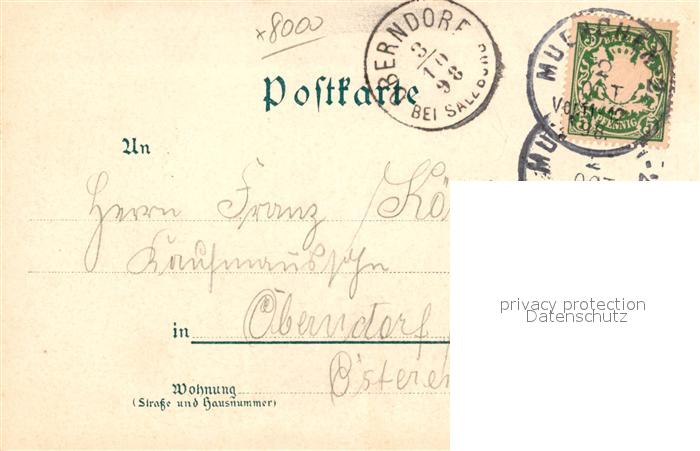 x8000
BERNDORF
3/10
98
BEI SALZBURG
MUENCHEN 2
BAYERN
OCT
VORM
PFENNIG 5
Postkarte
An
Herrn Franz Kö
Kaufmannssohn
in Oberndorf
Österei
Wohnung
(Straße und Hausnummer)
privacy protection
Datenschutz